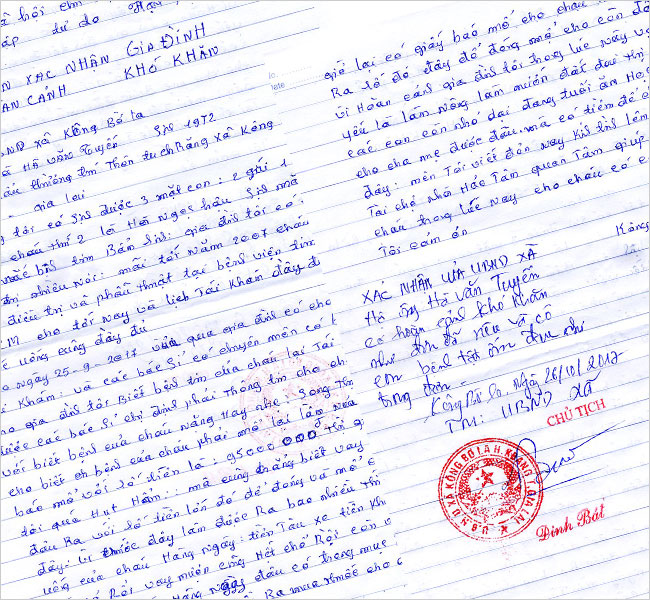 xã hội chủ
lập tự do Hạn
N XÁC NHẬN GIA ĐÌNH
AN CẢNH KHÓ KHĂN
UBND xã Kông Bờ La
Hà Văn Tuyến Sn 1972
trú thường tại Thôn tư ch Răng xã Kông
gia lai
tôi có Sn được 3 mặt con: 2 gái 1
cháu thứ 2 là Hà Ngọc hậu
mắc bệnh tim Bẩm Sinh: gia đình tôi có
trị nhiều nơi: mãi tới năm 2007 cháu
điều trị và phẫu thuật tại bệnh viện tim
M cho tới nay và lịch Tái Khám đầy đủ
uống cũng đầy đủ
ngày 25-9-2017 vừa qua gia đình có cho
Khám: và các bác Sĩ có chuyên môn có
gia đình tôi Biết bệnh tim của cháu lại Tái
được các bác Sĩ chỉ định phải Thông tim cho ch
với biết bệnh của cháu nặng Hay nhẹ: Song thì
cho biết bệnh của cháu phải mổ lại lần nữa
báo mổ với số tiền là: 95000.000 Thì g
tôi quá Hụt Hẫm: mà cũng chẳng biết vay
đâu Ra với số tiền lớn đó để đóng và mổ
đây: Vì trước đây lần được Ra bao nhiêu thì
uống của cháu Hàng ngày: tiền Tàu xe tiền Kh
Rồi vay mượn cũng Hết chỗ Rồi còn
Hàng ngày đâu có trong mục
Ra mua thuốc cho
giờ lại có giấy báo mổ cho cháu
Ra số đó đây để đóng mổ cho con đ
Vì Hoàn cảnh gia đình tôi trong lúc này v
yếu là làm nông làm mướn đất đai thì
các con còn nhỏ dại đang tuổi ăn Học
cho cha mẹ được đâu mà có tiền để
đây: nên Tôi viết đơn này Kính
Tài chợ nhà Hảo Tâm quan Tâm giúp
cháu trong lúc này cho cháu có c
Tôi cám ơn
Kông
XÁC NHẬN CỦA UBND XÃ
Hộ ông Hà Văn Tuyến
có hoàn cảnh khó khăn
như đơn đã nêu và có
con bệnh tật ốm đau như
trong đơn
Kông Bờ La, Ngày 26/10/2017
TM: UBND xã
CHỦ TỊCH
U.B.N.D XÃ KÔNG BỜ LA H. KBANG T. GIA LAI
Đinh Bát